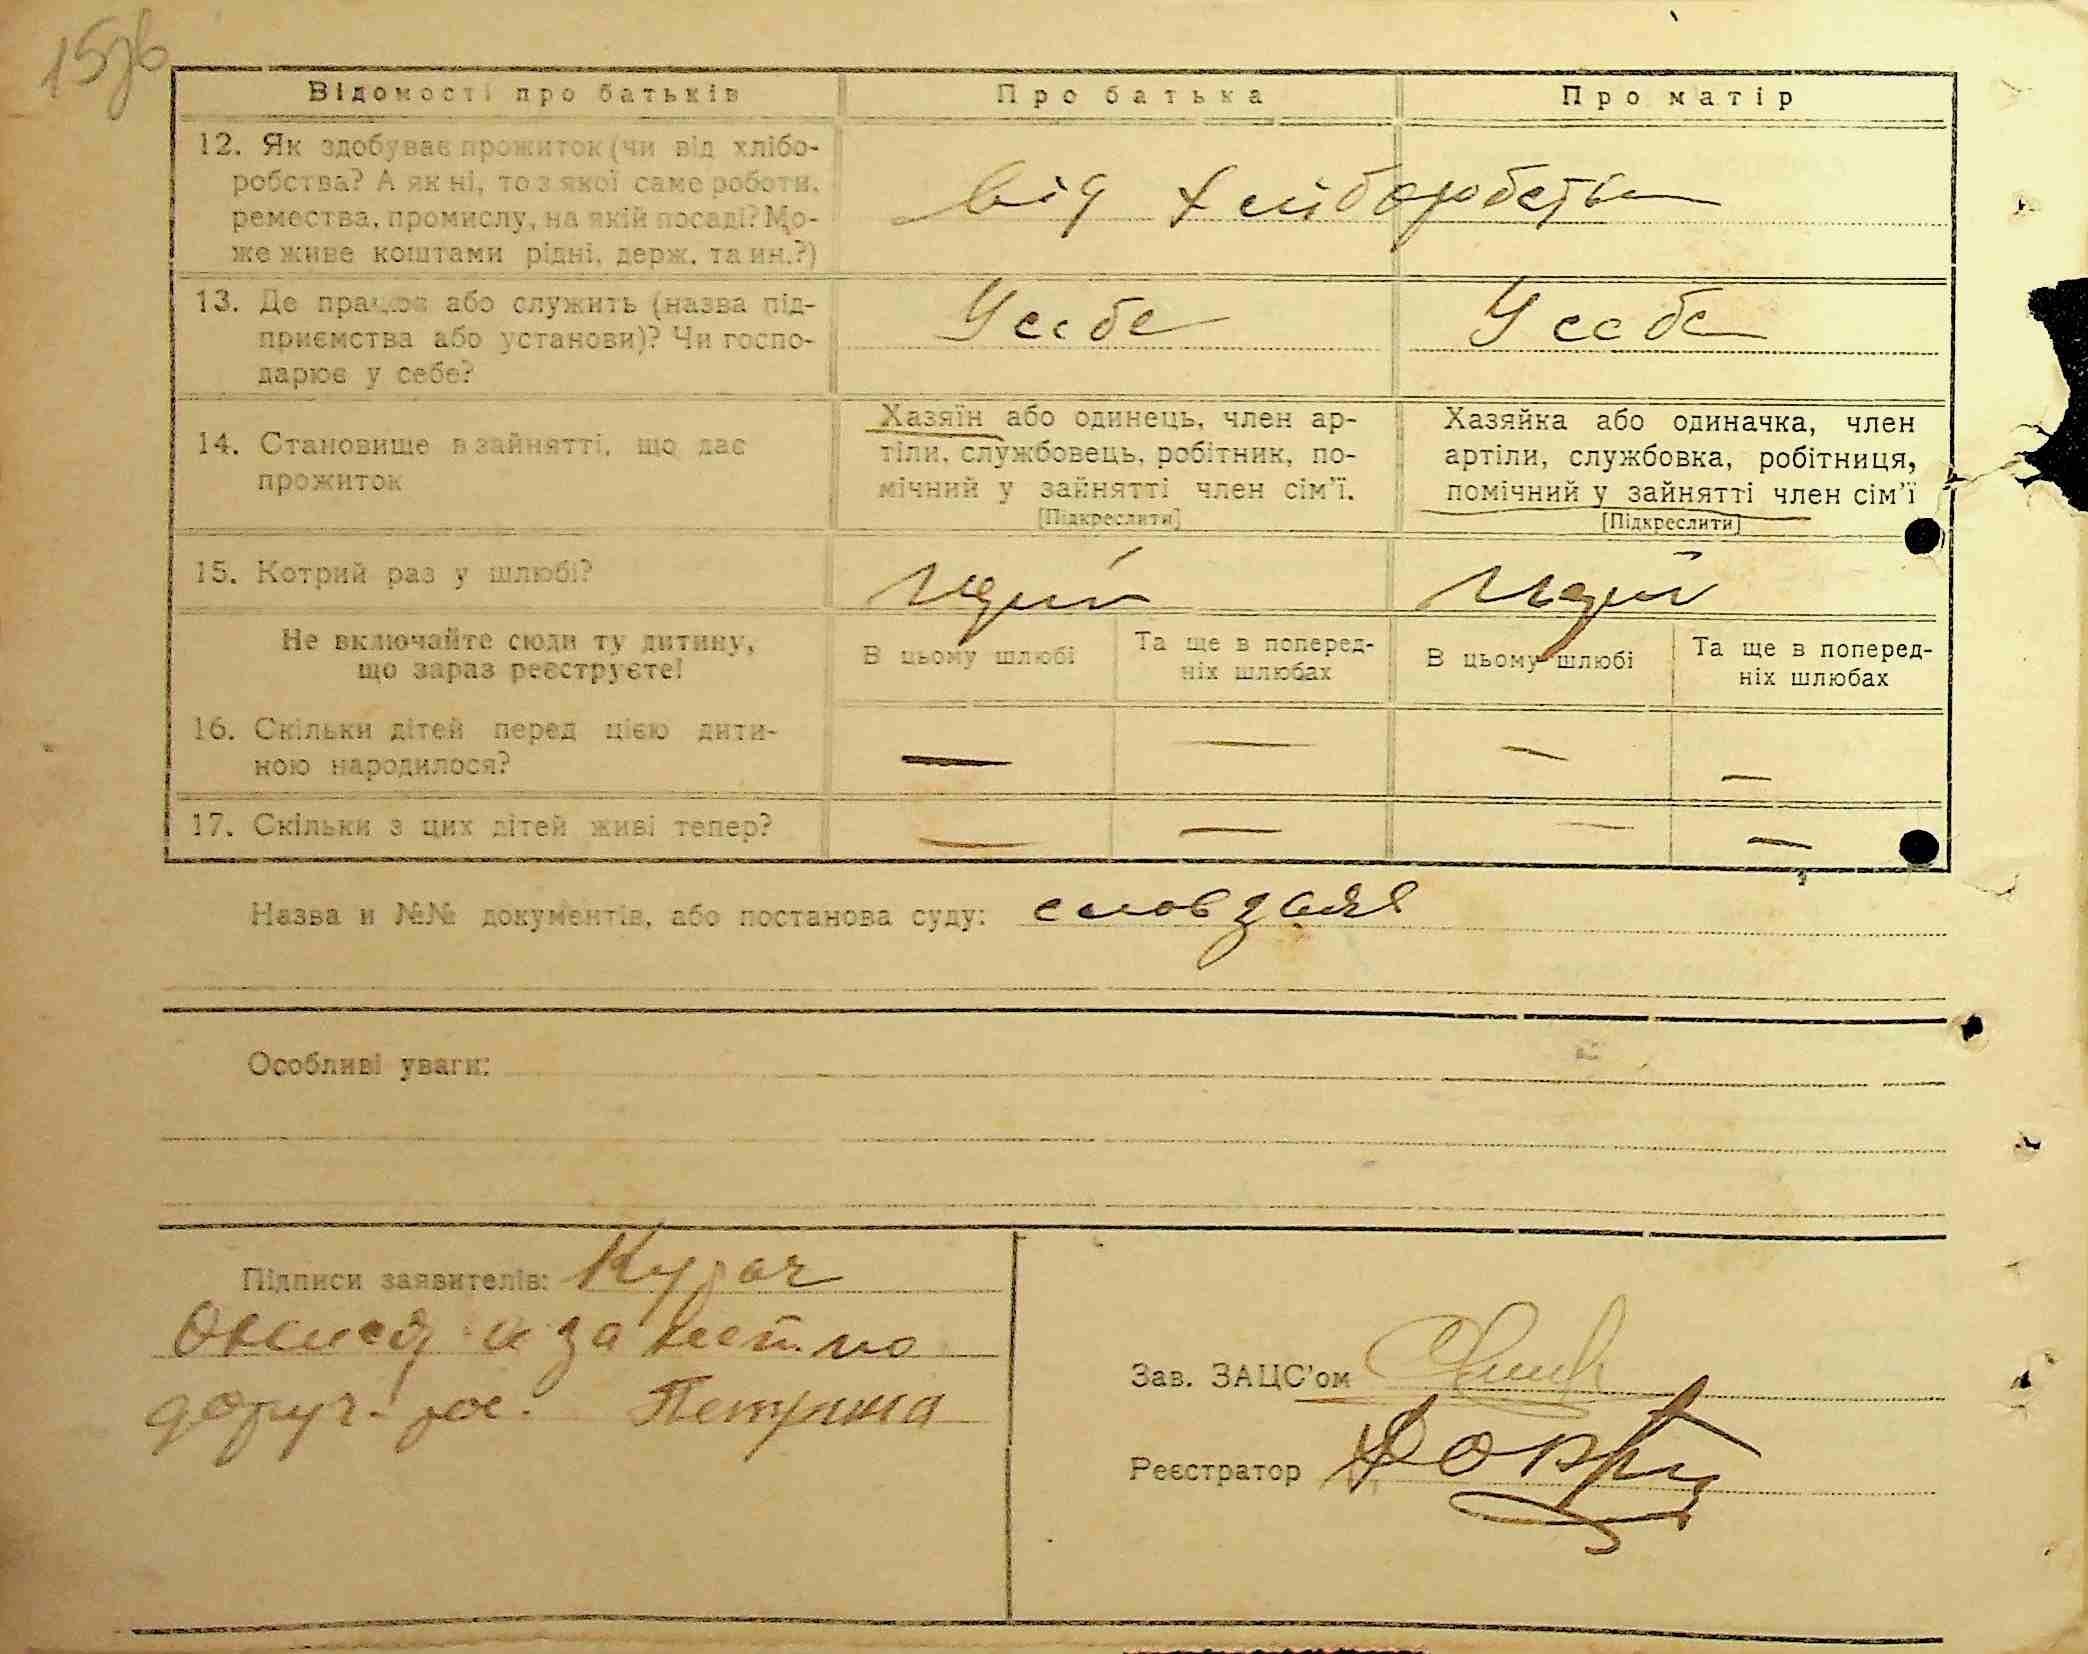 Відомості про батьків Про батька Про матір
12. Як здобуває прожиток (чи від хлібо-
робства? А як ні, то з якої саме роботи,
ремества, промислу, на якій посаді? Мо-
же живе коштами рідні, держ. та ин.?)
від хліборобства
13. Де працює або служить (назва під-
приємства або установи)? Чи госпо-
дарює у себе?
У себе У себе
14. Становище в зайнятті, що дає
прожиток
Хазяїн або одинець, член ар-
тіли, службовець, робітник, по-
мічний у зайнятті член сім'ї.
[Підкреслити]
Хазяйка або одиначка, член
артіли, службовка, робітниця,
помічний у зайнятті член сім'ї
[Підкреслити]
15. Котрий раз у шлюбі?
Не включайте сюди ту дитину,
що зараз реєструєте!
В цьому шлюбі
Та ще в поперед-
ніх шлюбах
В цьому шлюбі
Та ще в поперед-
ніх шлюбах
16. Скільки дітей перед цією дити-
ною народилося?
— — — —
17. Скільки з цих дітей живі тепер?
— — — —
Назва и №№ документів, або постанова суду:
Особливі уваги:
Підписи заявителів:
доруч.
Зав. ЗАЦС'ом
Реєстратор